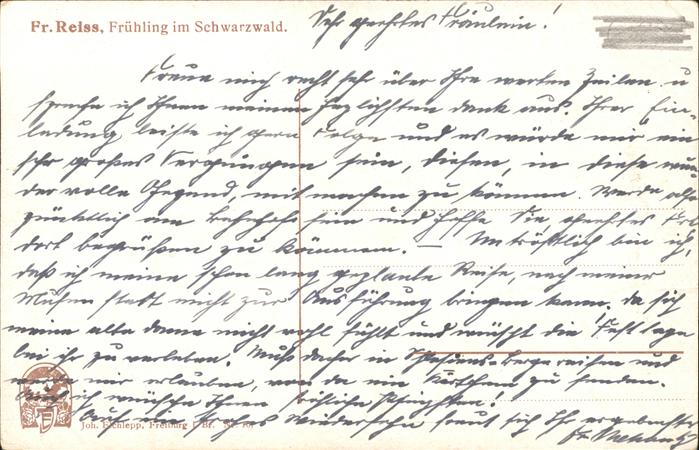 Fr. Reiss, Frühling im Schwarzwald.
Sehr geehrtes Fräulein!
Freue mich recht sehr über Ihre werten Zeilen u
spreche ich Ihnen meinen herzlichsten dank aus. Ihrer Ein-
ladung leiste ich gern Folge und es würde mir ein
sehr großes Vergnügen sein, diesen, in diese wun-
der volle Gegend, mitmachen zu können. Werde also
pünktlich am Bahnhof sein und hoffe Sie geehrtes
dort begrüßen zu können. — Untröstlich bin ich,
daß ich meine schon lang geplante Reise, nach meiner
nicht zur Ausführung bringen kann. da sich
meine alte dame nicht wohl fühlt und wünscht die Festtage
bei ihr zu verleben. Muß daher in reisen und
werde mir erlauben, von da ein Kärtchen zu senden.
Auch ich wünsche Ihnen fröhliche Pfingsten!
Auf ein frohes Wiedersehn freut sich Ihr ergebenster
Joh. Elchlepp, Freiburg i. Br.